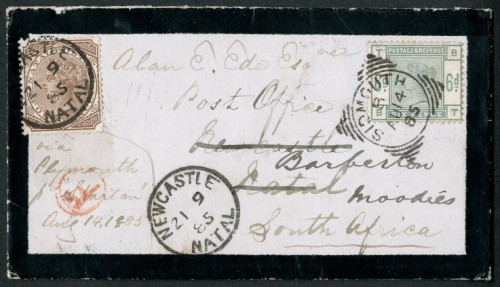 Alan E. Ede Esq
Post Office
Newcastle
Barberton
Natal
Moodies
South Africa
via
Plymouth
pr Spartan
Aug 14. 1885
NEWCASTLE
21 9
85
NATAL
NEWCASTLE
9
21 85
NATAL
SIDMOUTH
B
AU 14
85
POSTAGE & REVENUE
T B
6d.
B T